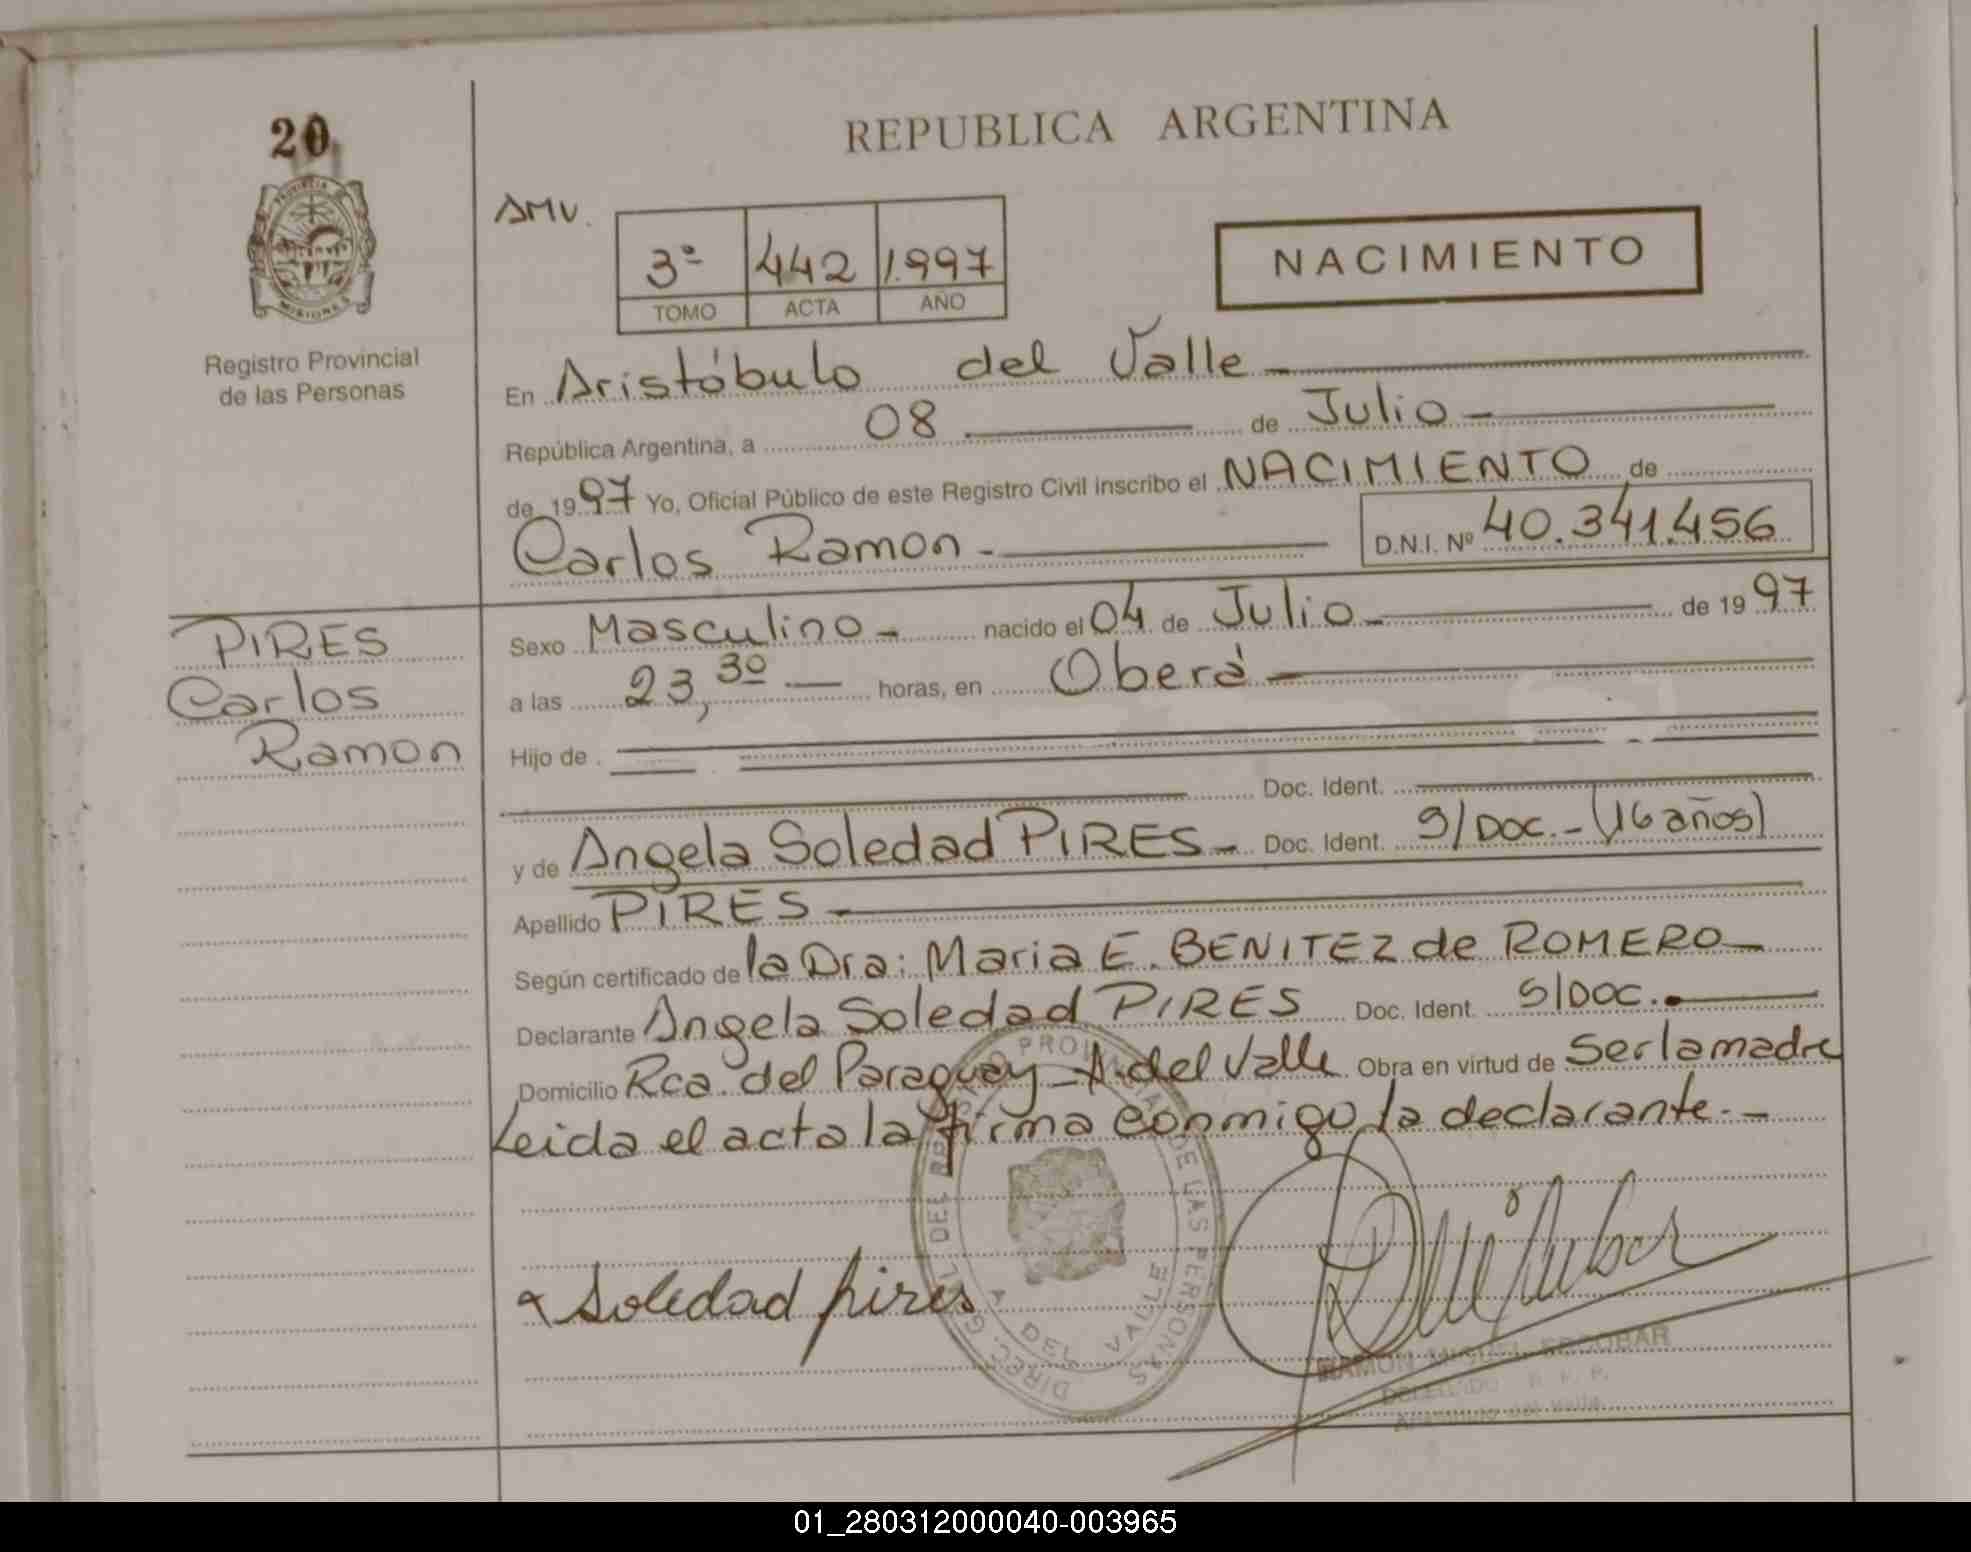 20
REPUBLICA ARGENTINA
PROVINCIA DE
MISIONES
Registro Provincial
de las Personas
AMV.
3º 442 1.997
TOMO ACTA AÑO
NACIMIENTO
En Aristóbulo del Valle
República Argentina, a 08 de Julio
de 1997 Yo, Oficial Público de este Registro Civil inscribo el NACIMIENTO de
Carlos Ramon D.N.I. Nº 40.341.456
PIRES
Carlos
Ramon
Sexo Masculino nacido el 04 de Julio de 1997
a las 23,30 horas, en Oberá
Hijo de
Doc. Ident.
y de Angela Soledad PIRES Doc. Ident. S/Doc.- (16 años)
Apellido PIRES
Según certificado de la Dra: Maria E. BENITEZ de ROMERO
Declarante Angela Soledad PIRES Doc. Ident. S/Doc.
Domicilio Rca. del Paraguay - A. del Valle Obra en virtud de Ser la madre
Leida el acta la firma conmigo la declarante.-
Soledad pires
DIREC. GRAL DEL REGISTRO PROVINCIAL DE LAS PERSONAS
A. DEL VALLE
RAMON MIGUEL ESCOBAR
DELEGADO R. P. P.
Aristóbulo del Valle
01_280312000040-003965